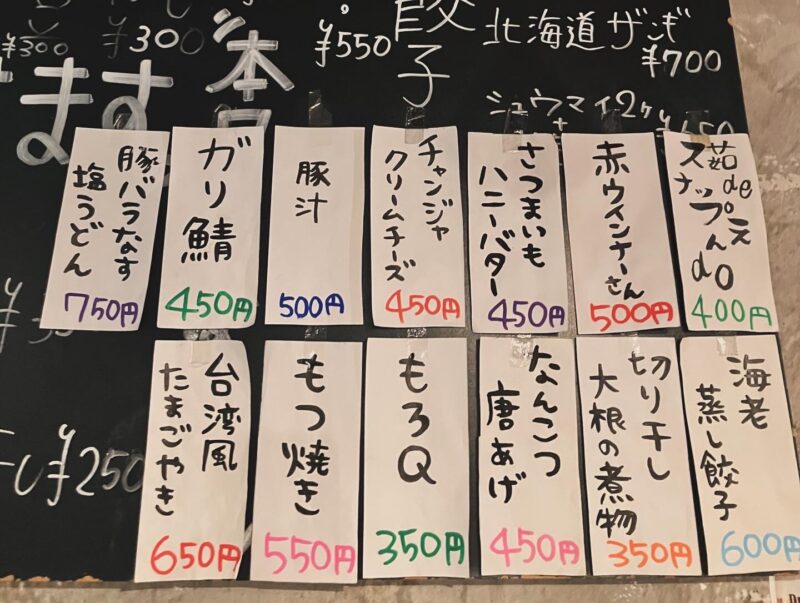 北海道ザンギ
¥700
シュウマイ2ヶ
餃子
¥550
¥300
¥300
ます
¥250
茹de
スナップえんdo
400円
赤ウインナーさん
500円
さつまいも
ハニーバター
450円
チャンジャ
クリームチーズ
450円
豚汁
500円
ガリ鯖
450円
豚バラなす
塩うどん
750円
海老
蒸し餃子
600円
切り干し
大根の煮物
350円
なんこつ
唐あげ
450円
もろQ
350円
もつ焼き
550円
台湾風
たまごやき
650円